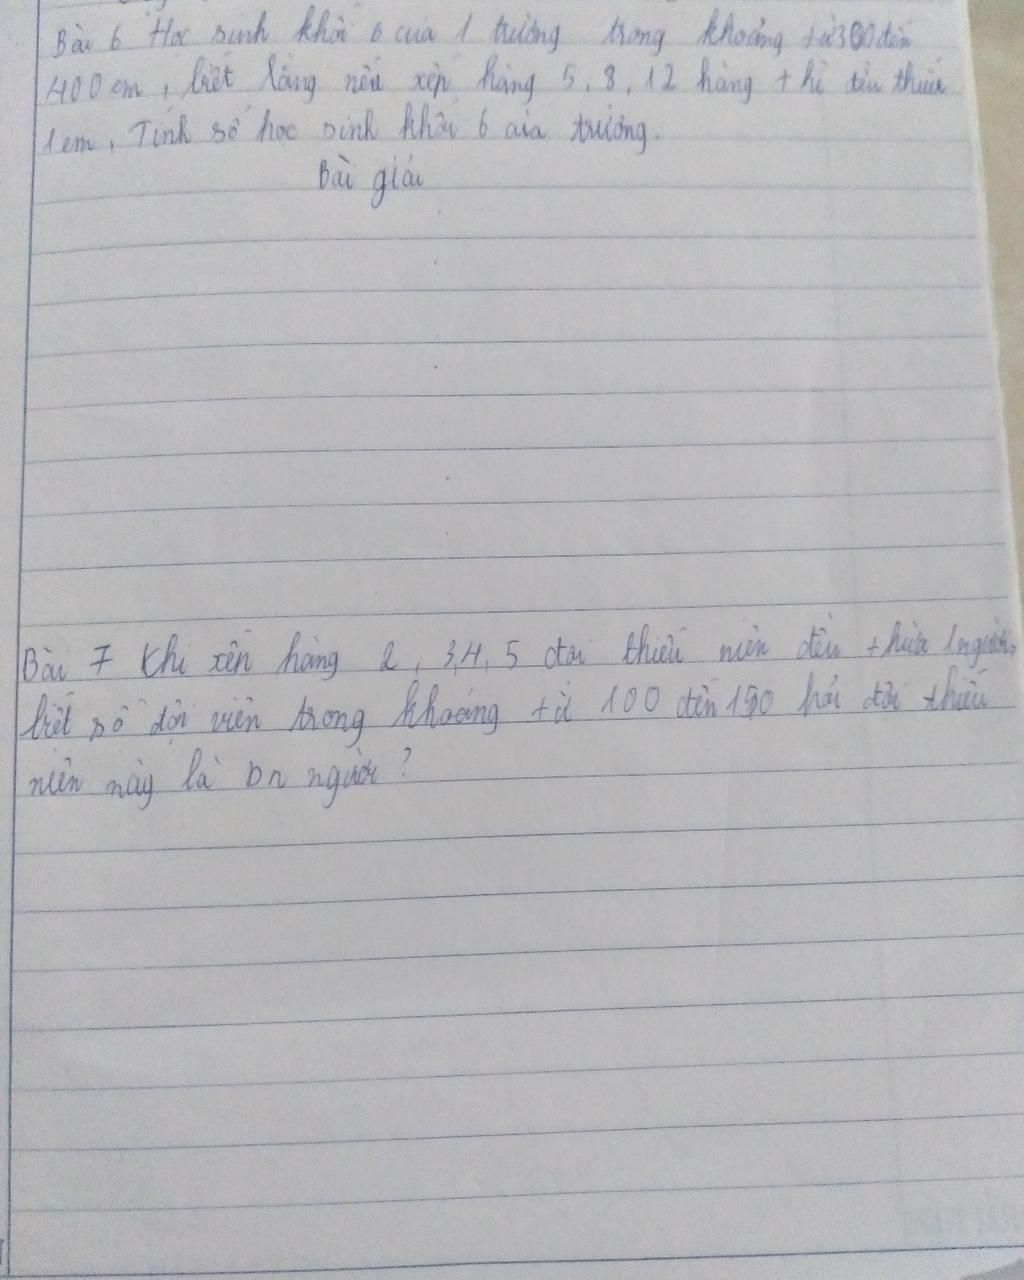 Bài 6 Học sinh khối 6 của 1 trường trong khoảng từ 300 đến
400 em, biết rằng nếu xếp hàng 5, 8, 12 hàng thì đều thiếu
1 em, Tính số học sinh khối 6 của trường.
Bài giải
Bài 7 Khi xến hàng 2, 3, 4, 5 đội thiếu niên đều thừa 1 người,
biết số đội viên trong khoảng từ 100 đến 150 hỏi đội thiếu
niên này là bn người?